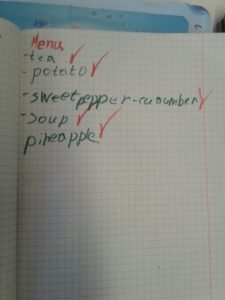 Menu
-tea
- potato
-sweet pepper-cucumber
-soup
pineapple